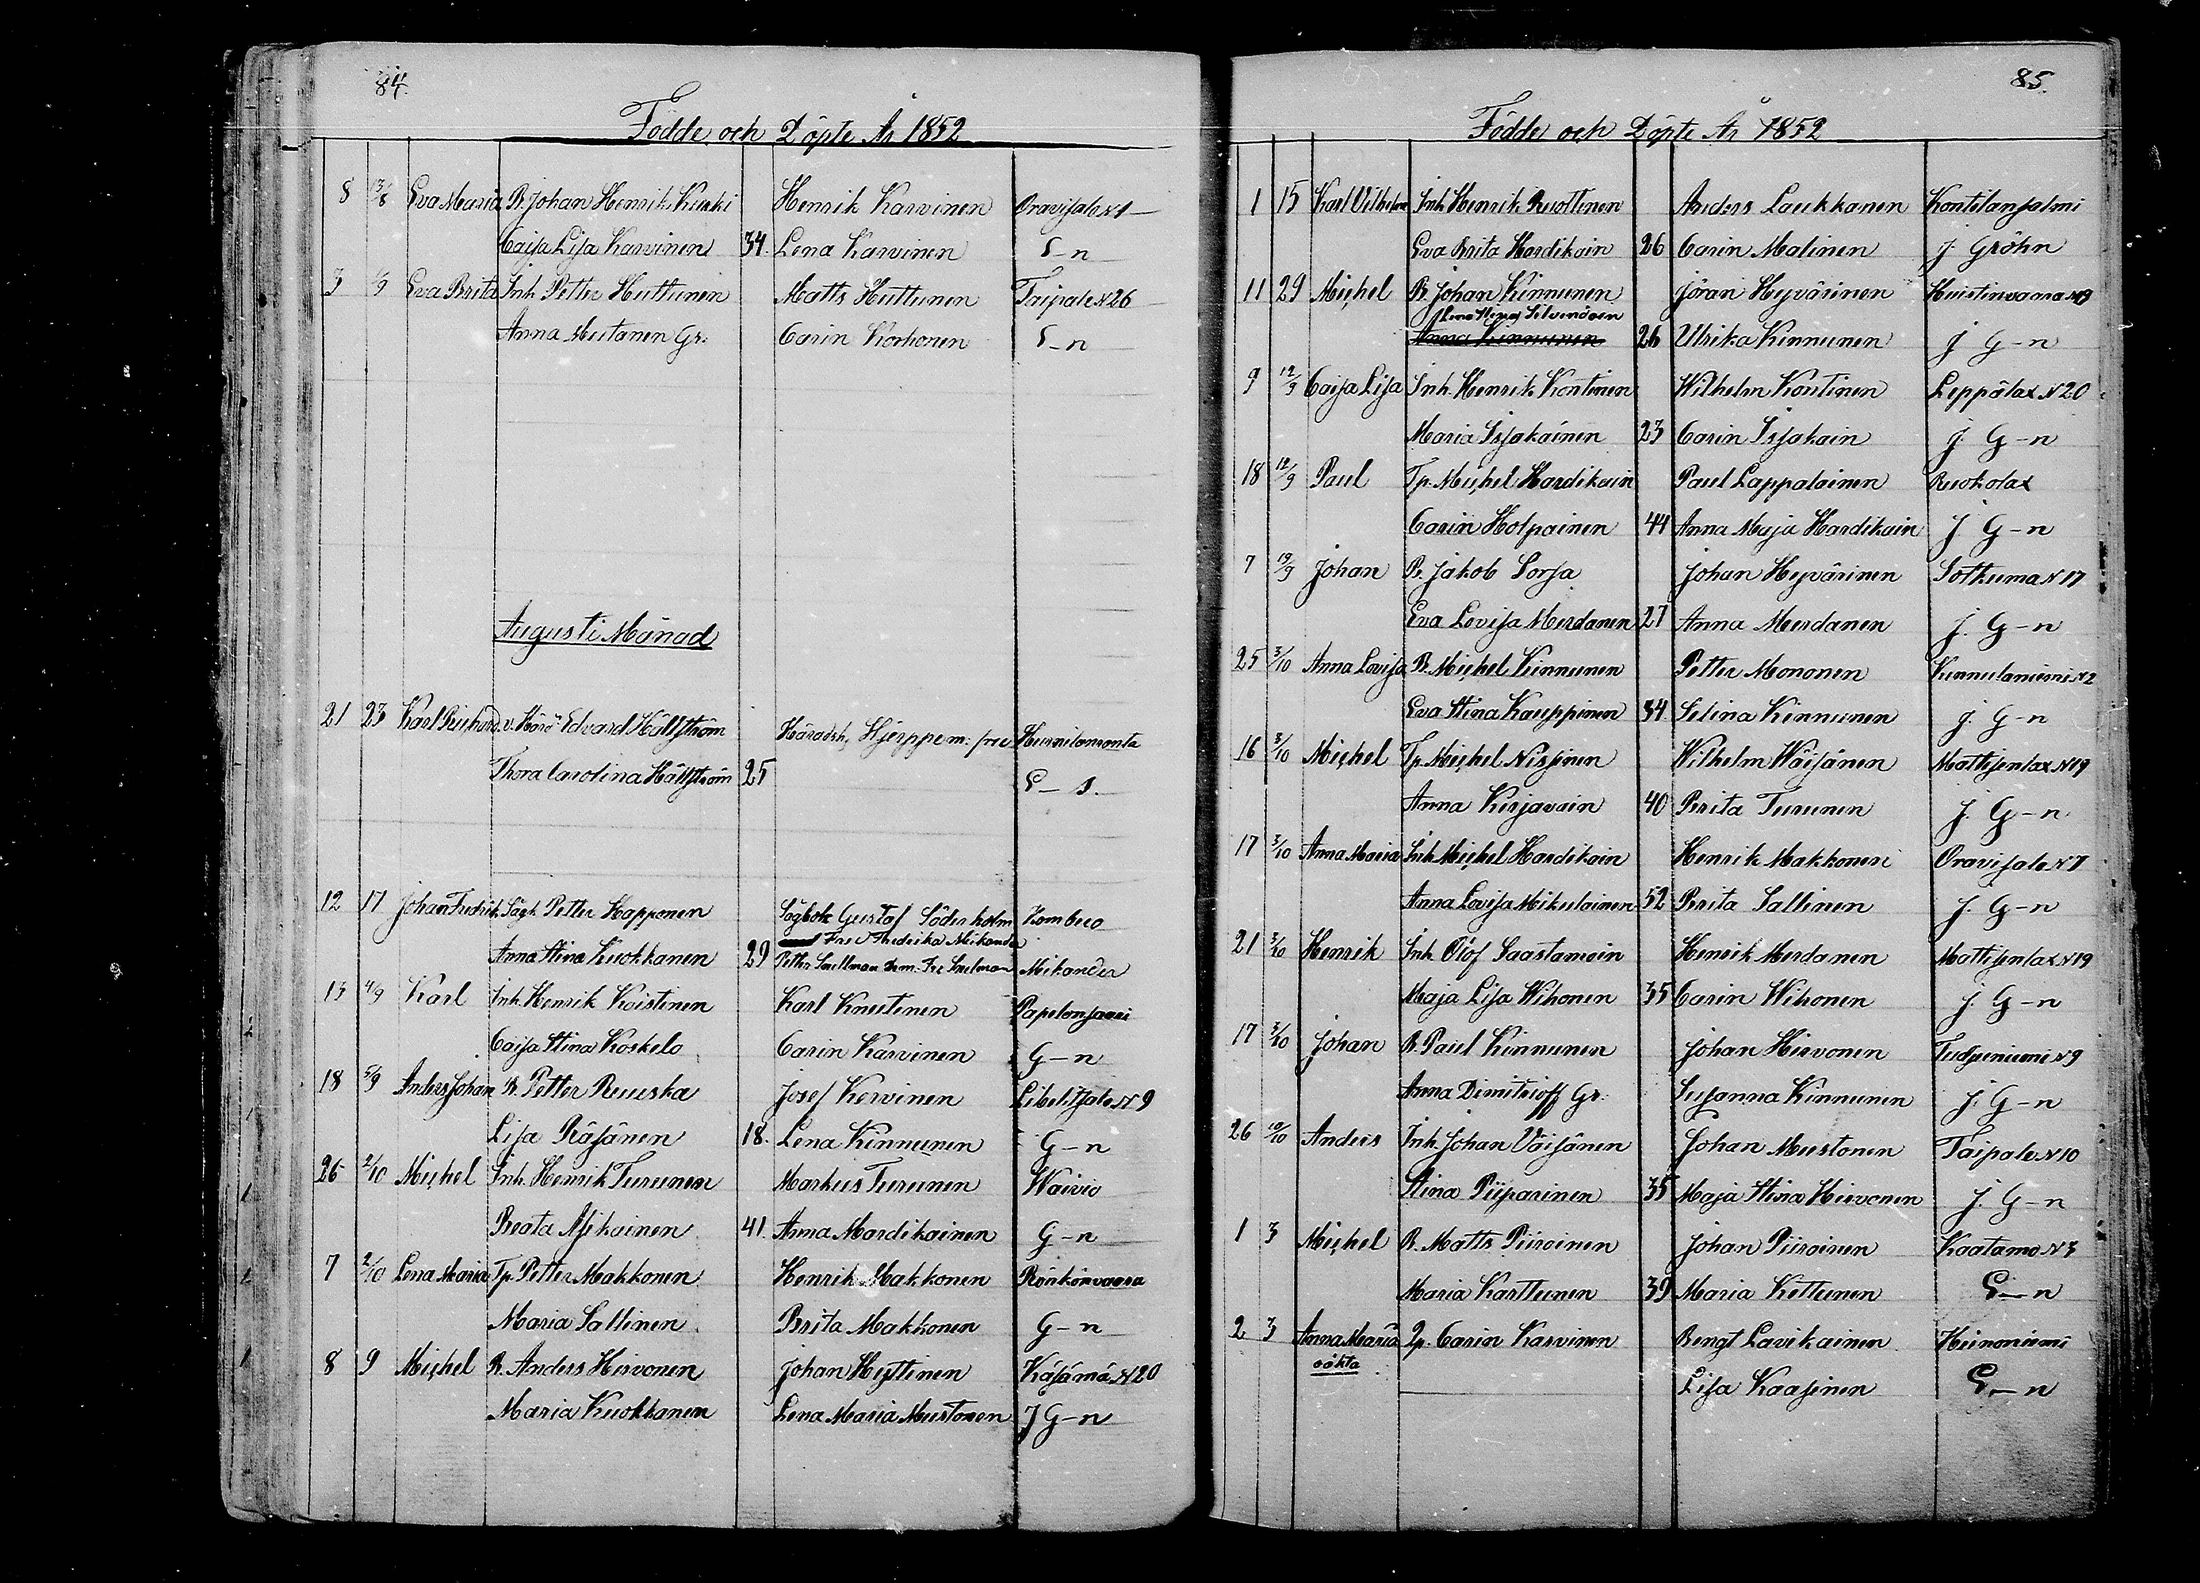 84.
Födde och Döpte År 1852
8 13/8 Eva Maria B. Johan Henrik Kurki Henrik Karvinen Oravisalo N 1
Caisa Lisa Karvinen 34. Lena Karvinen S-n
3 1/9 Eva Brita Inh. Petter Huttunen Matts Huttunen Taipale N 26
Anna Mutanen Gr. Carin Korhonen S-n
Augusti Månad
21 23 Karl Richard v. Härd. Edvard Hällström Häradsh. Hjerppe m: fru
Thora Carolina Hällström 25 S-s.
12 17 Johan Fredrik Sägk Petter Happonen Sägbok. Gustaf Söderholm Kombuo
Fru Fredrika Mikander
Anna Stina Kuokkanen 29 Petter Snellman Dem. Fre Snelman Mikander
13 4/9 Karl Inh. Henrik Koistinen Karl Knuutinen Papelonsaari
Caisa Stina Koskelo Carin Karvinen G-n
18 5/9 Anders Johan B. Petter Ruuska Josef Kervinen Libelitsalo N 9
Lisa Räsänen 18. Lena Kinnunen G-n
26 2/10 Michel Inh. Henrik Turunen Markus Turunen Waivio
Beata Asikainen 41. Anna Mardikainen G-n
7 2/10 Lena Maria Tp. Petter Makkonen Henrik Makkonen Rönkönvaara
Maria Sallinen Brita Makkonen G-n
8 9 Michel B. Anders Hirvonen Johan Hyttinen Käsämä N 20
Maria Kuokkanen Lena Maria Mustonen J G-n
85.
Födde och Döpte År 1852
1 15 Karl Vilhelm Inh. Henrik Ruottinen Anders Laukkanen Kontilansalmi
Eva Brita Hardikain 26 Carin Malinen J. Gröhn
11 29 Michel B. Johan Kinnunen Jöran Hyvärinen Huistinvaara N 9
Silvendoen
Anna Kinnunen 26 Ulrika Kinnunen J G-n
9 12/9 Caisa Lisa Inh. Henrik Kontinen Wilhelm Kontinen Leppälax N 20
Maria Isjakainen 23 Carin Isjakain J. G-n
18 12/9 Paul Tp. Michel Hardikain Paul Lappalainen Ruokolax
Carin Holpainen 44 Anna Maja Hardikain J G-n
7 19/9 Johan B. Jakob Sorsa Johan Hyvärinen Sotkuma N 17
Eva Lovisa Murdanen 27 Anna Murdanen J. G-n
25 3/10 Anna Lovisa B. Michel Kinnunen Petter Mononen Kinnulaniemi N 2
Eva Stina Kauppinen 34 Selina Kinnunen J. G-n
16 3/10 Michel Tp. Michel Nissinen Wilhelm Wäisänen Mattisenlax N 19
Anna Kirjavain 40 Brita Turunen J. G-n
17 3/10 Anna Maria Inh. Michel Hardikain Henrik Makkonen Oravisalo N 7
Anna Lovisa Mikulainen 52 Brita Sallinen J. G-n
21 3/10 Henrik Inh. Olof Saastamoin Henrik Murdanen Mattisenlax N 19
Maja Lisa Wihonen 35 Carin Wihonen J. G-n
17 3/10 Johan B. Paul Kinnunen Johan Hirvonen N 9
Anna Dimitrioff Gr. Susanna Kinnunen J. G-n
26 10/10 Anders Inh. Johan Väisänen Johan Mustonen Taipale N 10
Stina Piiparinen 35 Maja Stina Hirvonen J. G-n
1 3 Michel B. Matts Piiroinen Johan Piiroinen Kaatamo N 3
Maria Karttunen 39 Maria Kettunen S-n
2 3 Anna Maria Qp. Carin Karvinen Bengt Lavikainen Heinoniemi
oäkta Lisa Kaasinen S-n